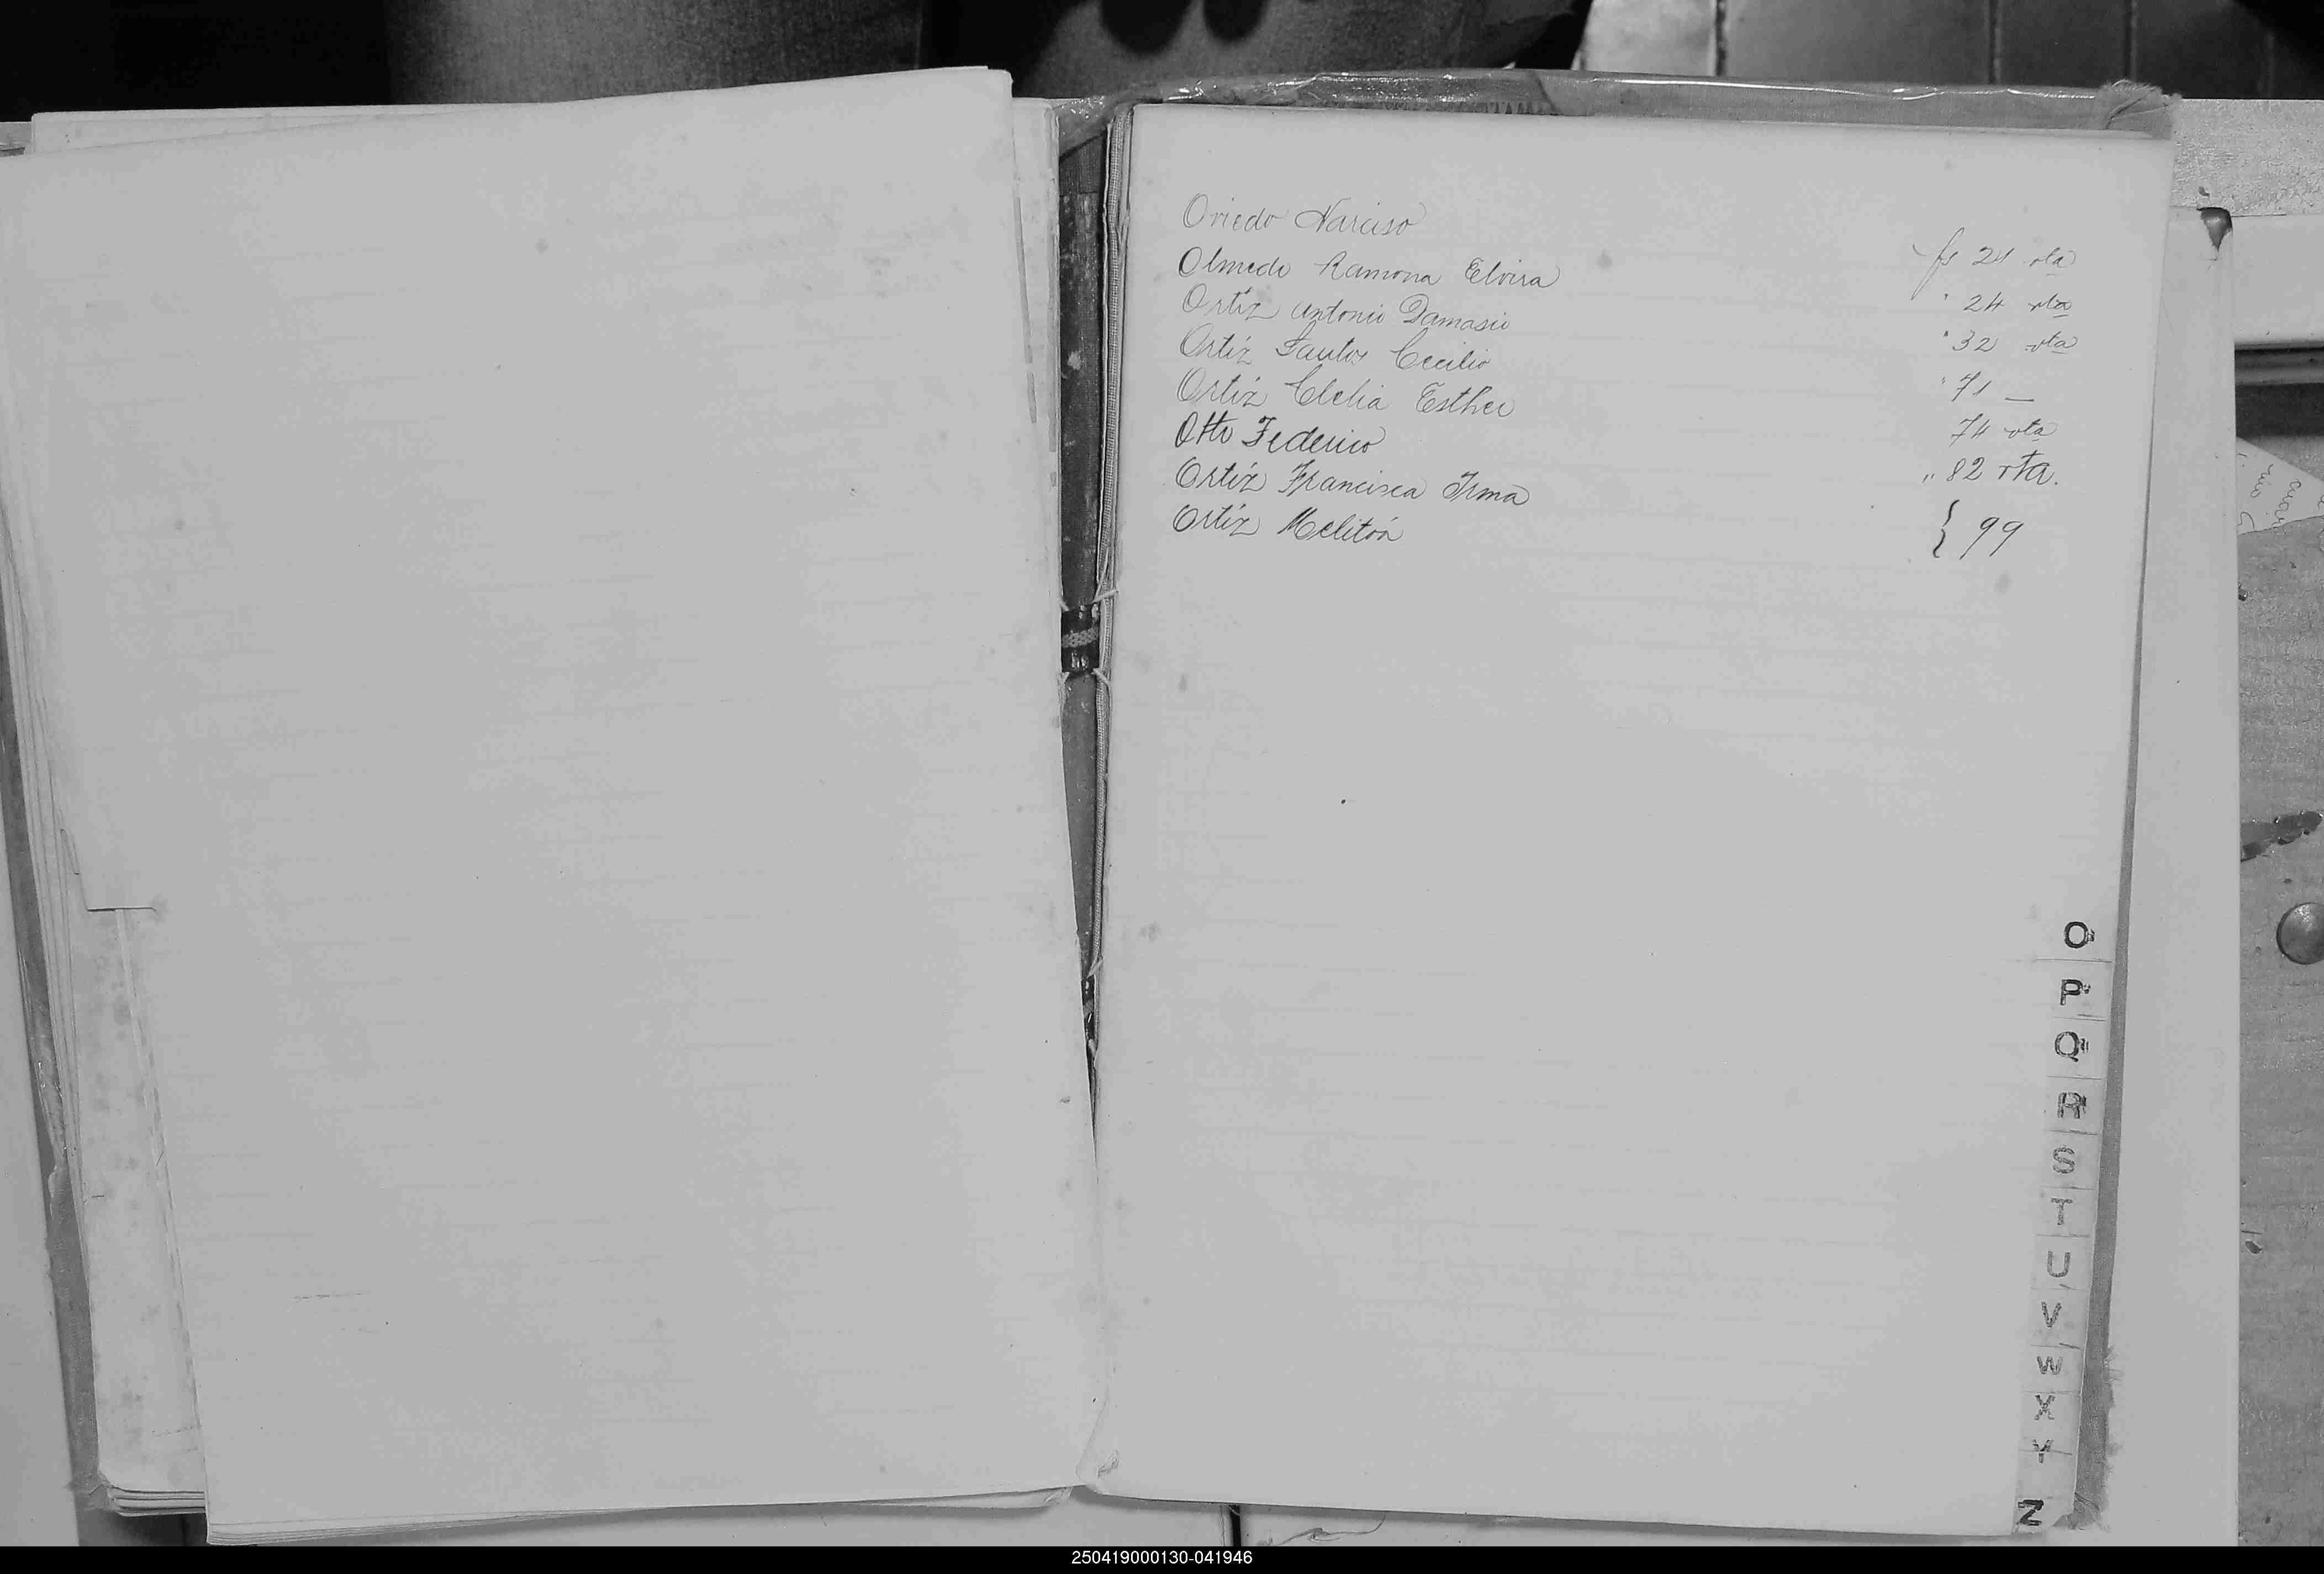 Oviedo Narciso fs 21 vta
Olmedo Ramona Elvira " 24 vta
Ortíz Antonio Damasio " 32 vta
Ortíz Santos Cecilio " 71 —
Ortíz Clelia Esther 74 vta
Otto Federico " 82 vta.
Ortíz Francisca Irma } 99
Ortíz Melitón
O
P
Q
R
S
T
U
V
W
X
Y
Z
250419000130-041946